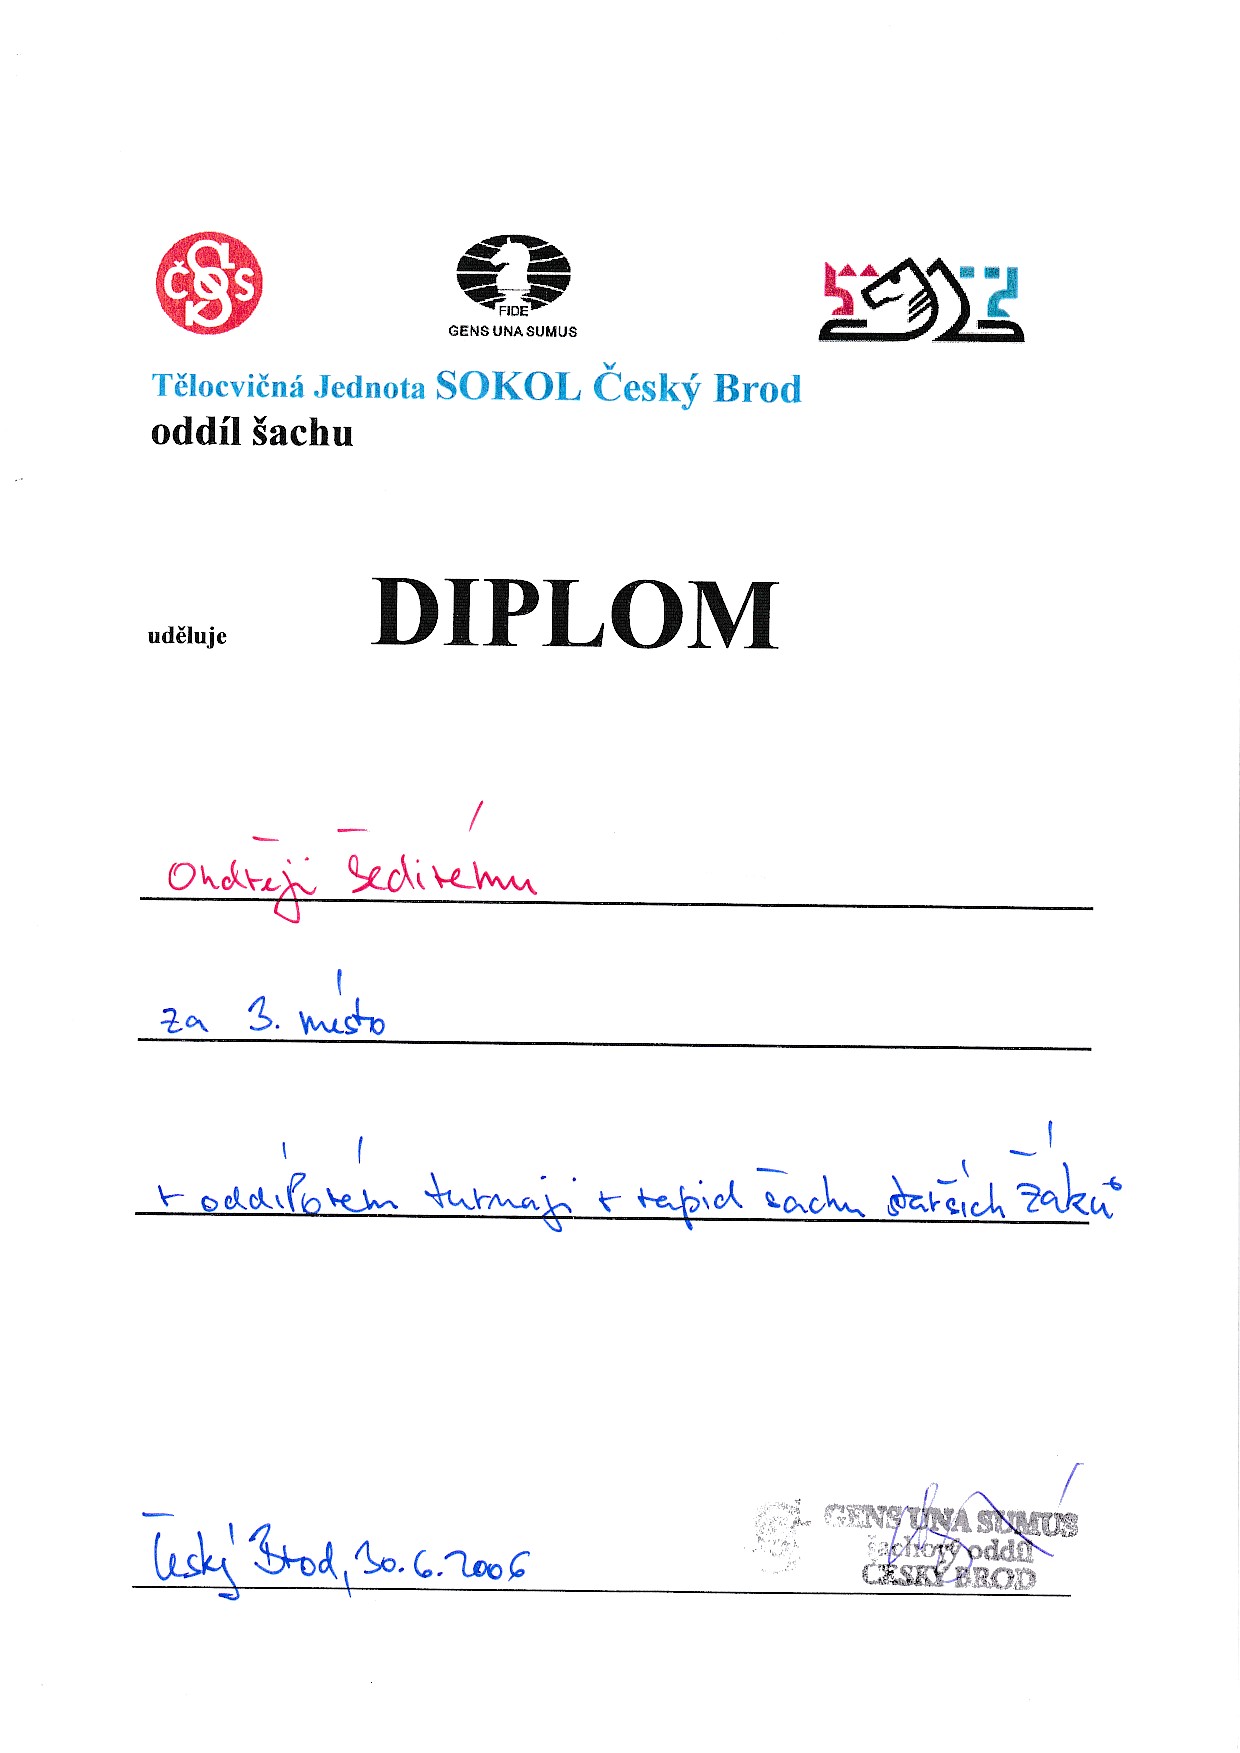 ČSŠS
FIDE
GENS UNA SUMUS
Tělocvičná Jednota SOKOL Český Brod
oddíl šachu
uděluje DIPLOM
Ondřeji Šedivému
za 3. místo
v oddílovém turnaji v rapid šachu starších žáků
Český Brod, 30.6.2006
GENS UNA SUMUS
šachový oddíl
ČESKÝ BROD